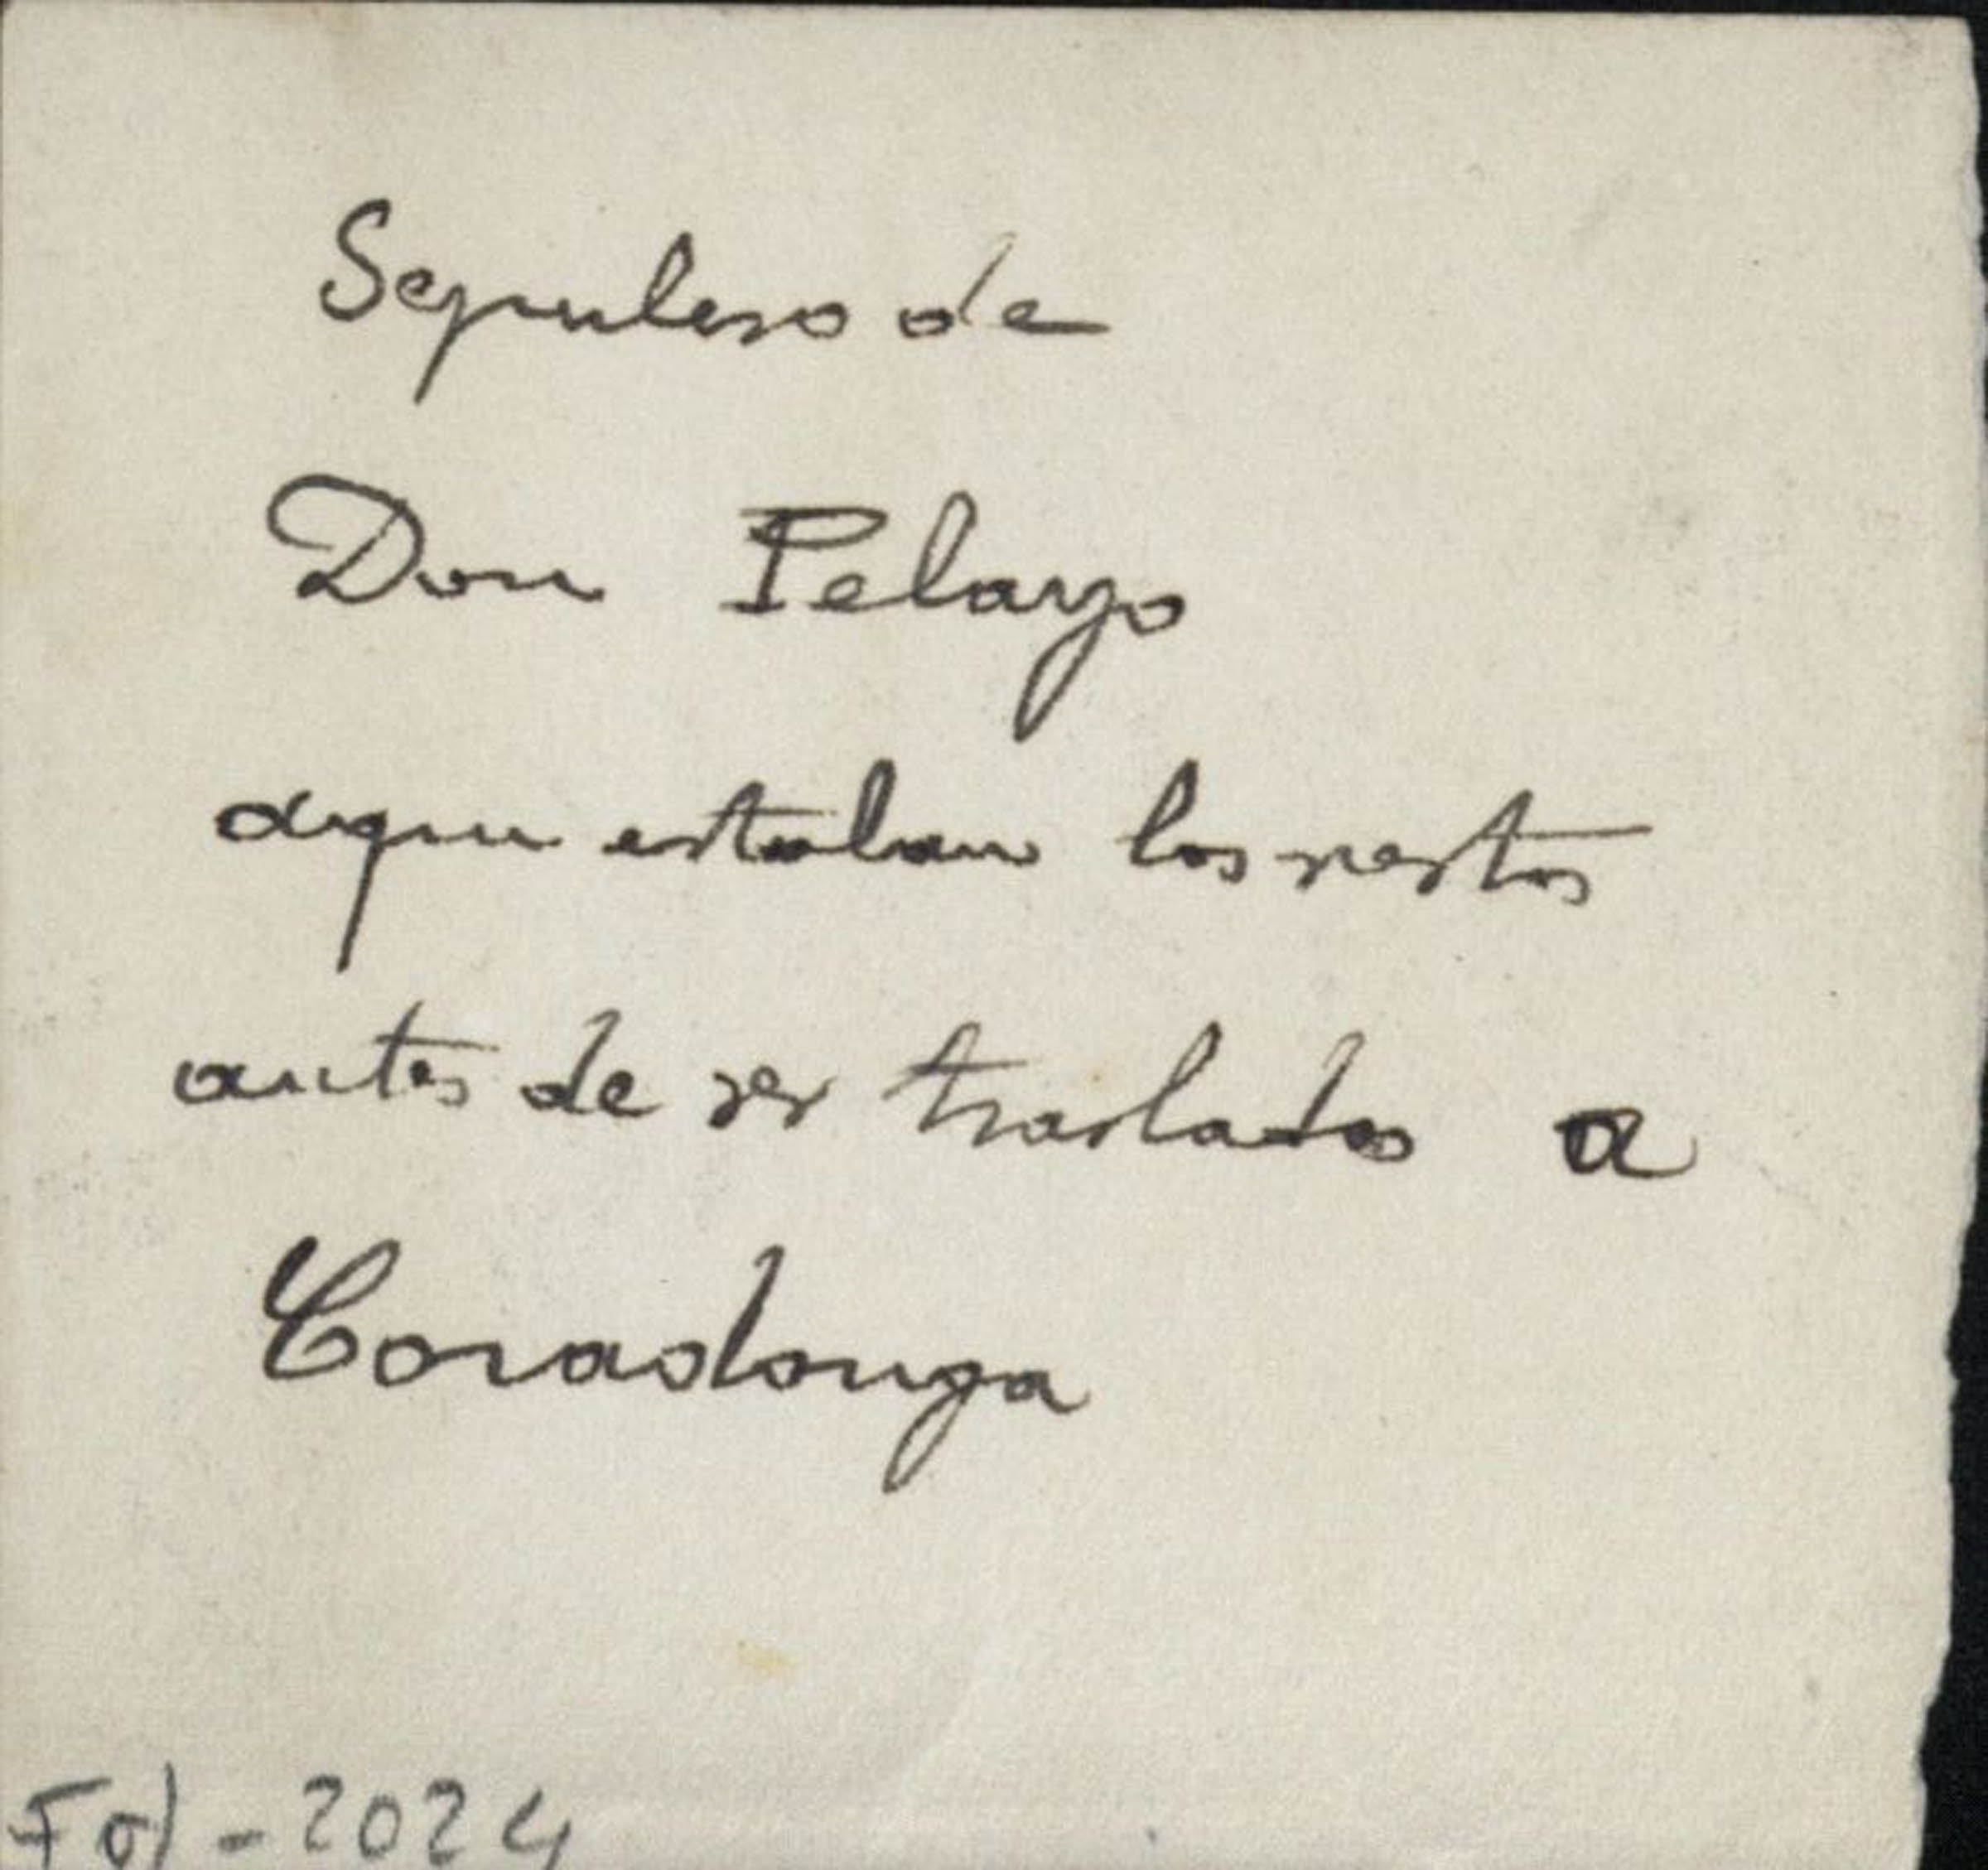 Sepulcro de
Don Pelayo
aqui estaban los restos
antes de ser traslados a
Covadonga
-2024